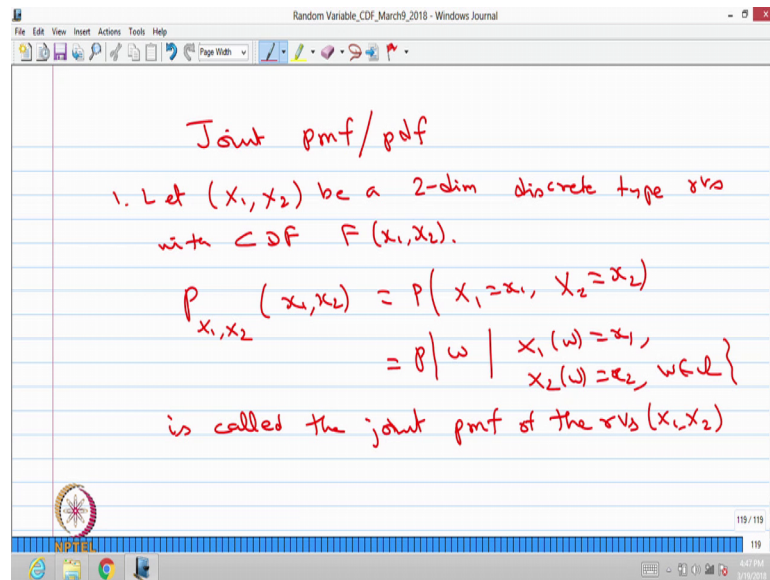 Random Variable_CDF_March9_2018 - Windows Journal
File Edit View Insert Actions Tools Help
Page Width
Joint pmf/pdf
1. Let (X₁, X₂) be a 2-dim discrete type rvs
with CDF F(x₁,x₂).
P_{X₁,X₂} (x₁,x₂) = P( X₁=x₁, X₂=x₂)
= P{ w | X₁(w)=x₁,
X₂(w)=x₂, w∈Ω}
is called the joint pmf of the rvs (X₁,X₂)
NPTEL
119 / 119
119
4:47 PM
3/19/2018